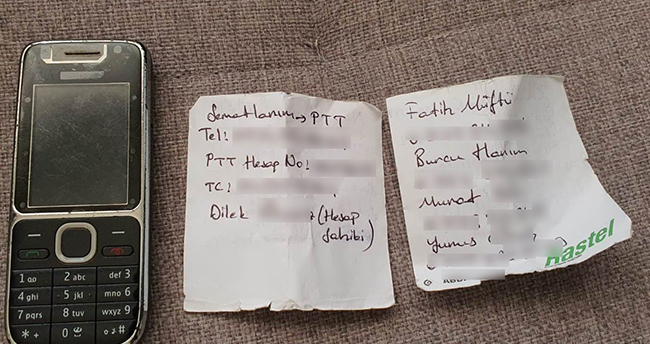 1 oo
2 abc
def 3
4 ghi
5 jkl
mno 6
7 pqrs
8 tuv
wxyz 9
* +
0
#
Sema Hanım → PTT
Tel:
PTT Hesap No:
TC:
Dilek (Hesap
Sahibi)
Fatih Müftü
Burcu Hanım
Murat
Yunus
hastel